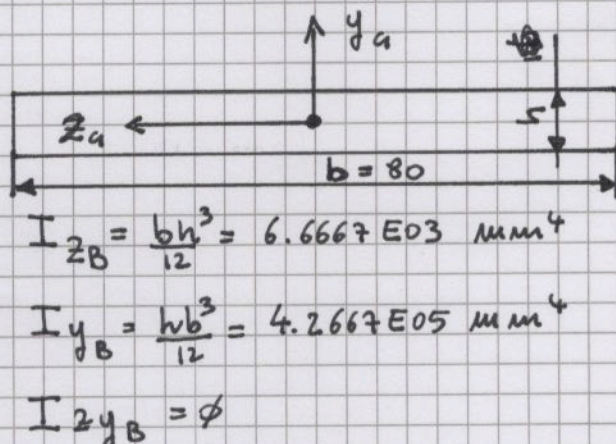 y_a
z_a
5
b = 80
I_{z_B} = \frac{bh^3}{12} = 6.6667 E03 mm^4
I_{y_B} = \frac{hb^3}{12} = 4.2667 E05 mm^4
I_{zy_B} = ∅